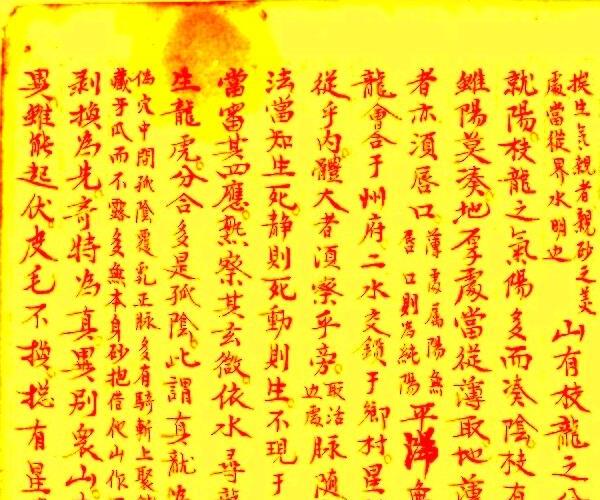 挨生氣親者親砂之美
處當從界水明边
山有枝龍之
就陽枝龍之氣陽多而湊陰枝
雖陽莫湊地厚處當從薄取地薄
者亦須唇口
薄處属陽無
唇口則為純陽
平洋
龍會合于州府二水交鎖于鄉村星
從乎內體大者須察乎旁
取活
边處
脉随
法當知生死静則死動則生不現于
當審其四應熟察其玄微依水尋龍
生龍虎分合多是孤陰此謂真就
偽穴中間孤陰覆乳正脉多有騎斬上聚
藏牙爪而不露多無本身砂抱借他山作
剥换為先奇特為真異别衆山
異雖能起伏皮毛不换揔有星